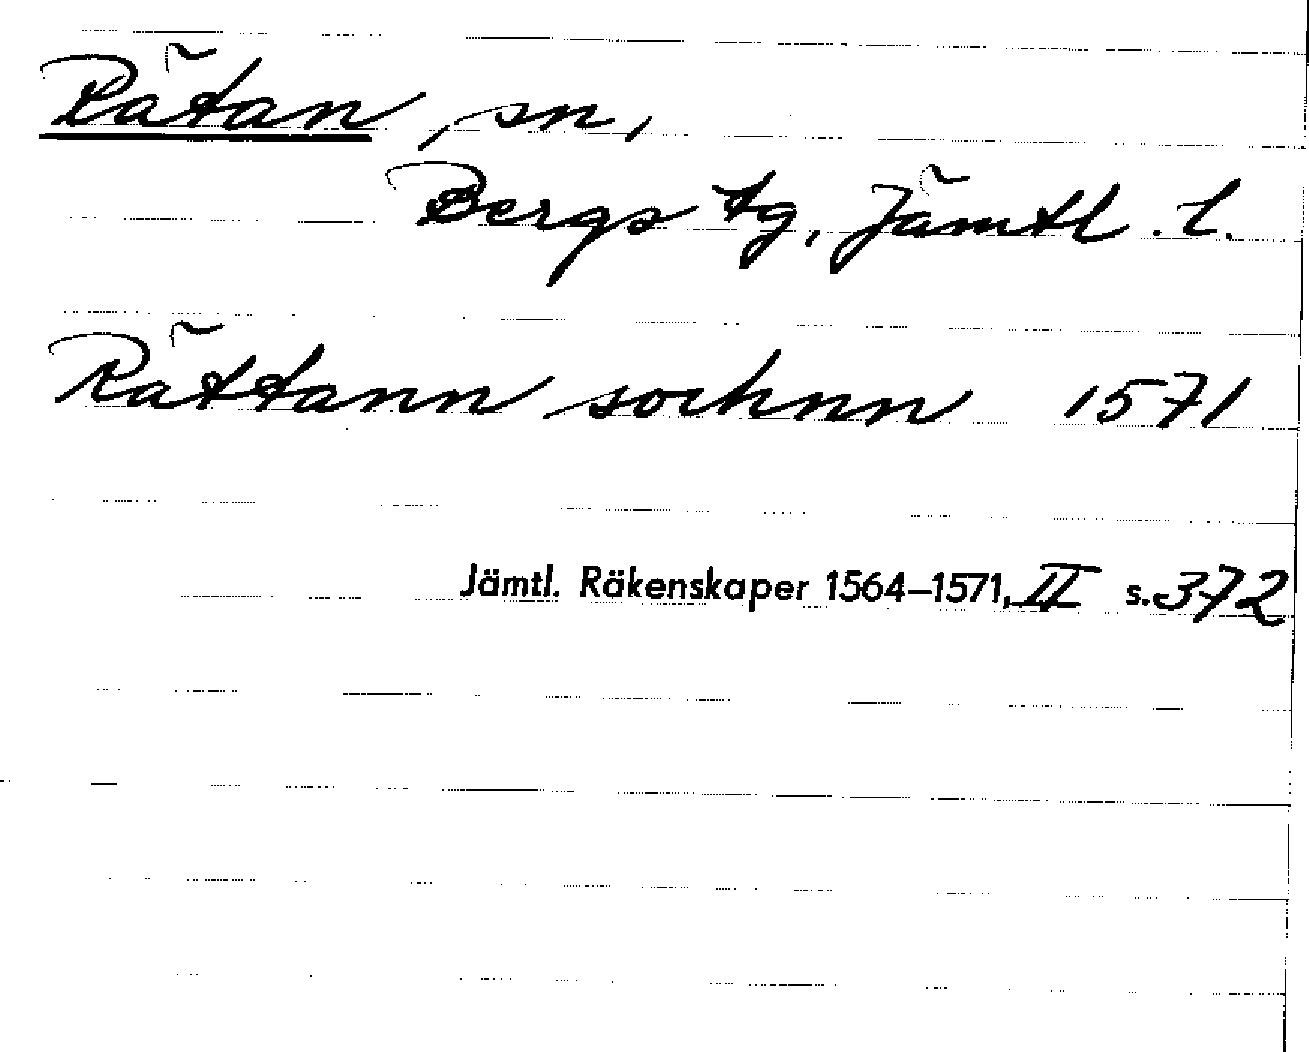 Rätan, sn,
Bergs tg, Jämtl. l.
Rättann sochnn 1571
Jämtl. Räkenskaper 1564–1571, II s. 372